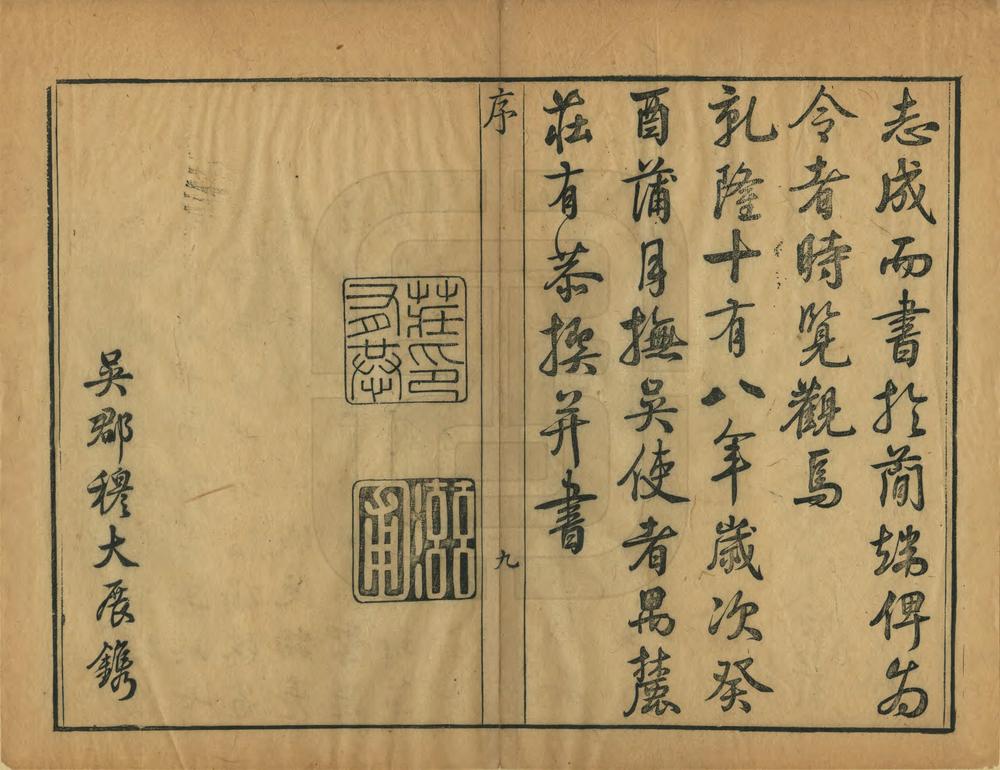 志成而書於簡端俾為
令者時覽觀焉
乾隆十有八年歲次癸
酉蒲月撫吳使者禺麓
莊有恭撰并書
序
九
莊印有恭
滋圃
吳郡穆大展鐫